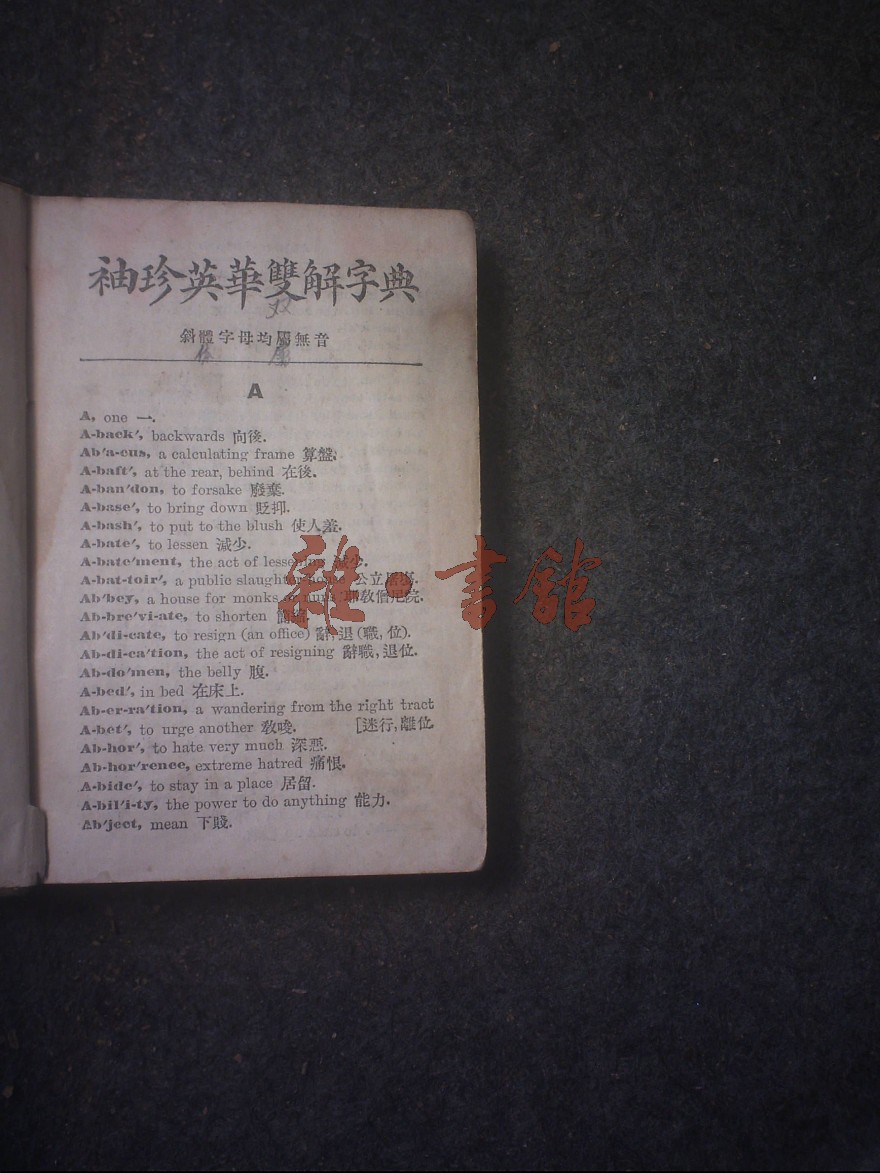 袖珍英華雙解字典
双
斜體字母均屬無音
体 属
A
A, one 一.
A-back′, backwards 向後.
Ab′a-cus, a calculating frame 算盤.
A-baft′, at the rear, behind 在後.
A-ban′don, to forsake 廢棄.
A-base′, to bring down 貶抑.
A-bash′, to put to the blush 使人羞.
A-bate′, to lessen 減少.
A-bate′ment, the act of lessening 減少.
A-bat-toir′, a public slaughter-house 公立屠塲.
Ab′bey, a house for monks or nuns 耶敎僧尼院.
Ab-bre′vi-ate, to shorten
Ab′di-cate, to resign (an office) 辭, 退 (職, 位).
Ab-di-ca′tion, the act of resigning 辭職, 退位.
Ab-do′men, the belly 腹.
A-bed′, in bed 在床上.
Ab-er-ra′tion, a wandering from the right tract
A-bet′, to urge another 敎唆. [迷行, 離位
Ab-hor′, to hate very much 深惡.
Ab-hor′rence, extreme hatred 痛恨.
A-bide′, to stay in a place 居留.
A-bil′i-ty, the power to do anything 能力.
Ab′ject, mean 下賤.
雜·書館